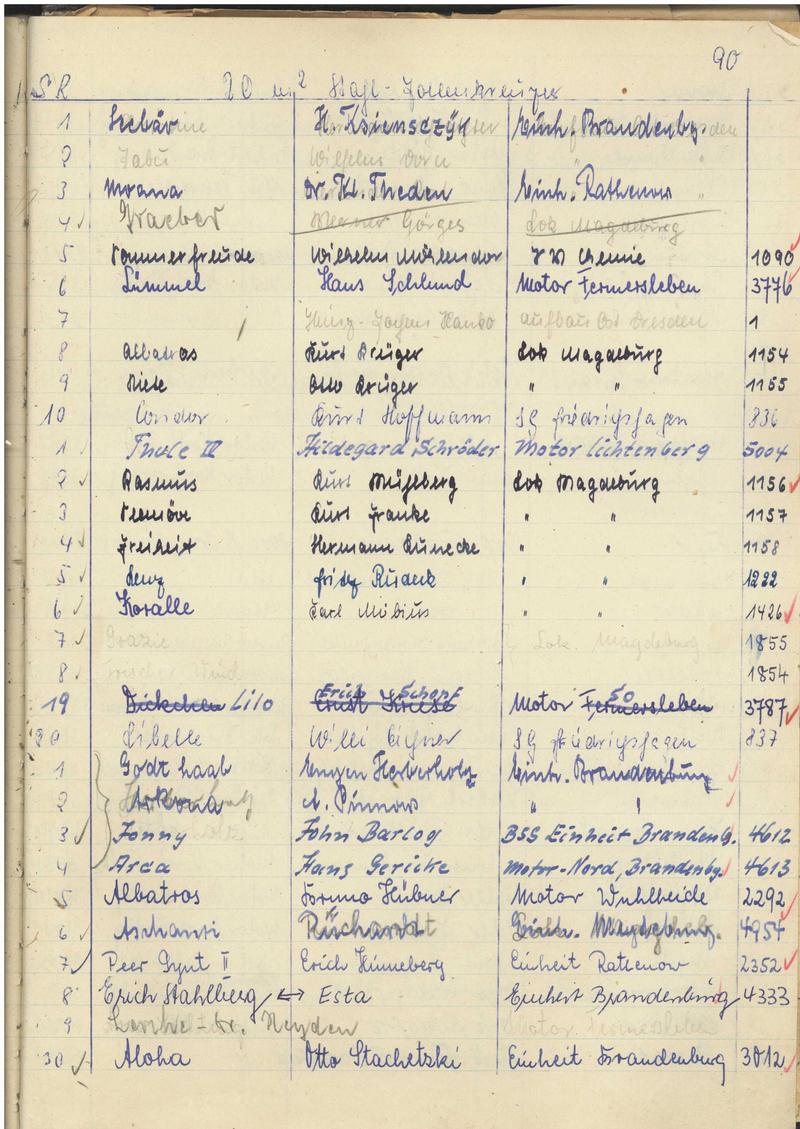 90
SR 20 m² Stahl-Jollenkreuzer
1 H. Ksiensczyk Einh. Brandenbg.
2 Jabu Wilhelm Dorn
3 Morana Dr. Kl. Theden Einh. Rathenow "
4 Graebed Werner Görges Lok Magdeburg
5 Sommerfreude Wilhelm Chemie 1090
6 Lümmel Hans Schlund Motor Fermersleben 3776
7 Heinz-Jochen Aufbau Ost Dresden 1
8 Albatros Kurt Krüger Lok Magdeburg 1154
9 Nixe Otto Krüger " " 1155
10 Condor Kurt Hoffmann SG Friedrichshagen 836
1 Thule IV Hildegard Schröder Motor Lichtenberg 5004
2 Rasmus Kurt Mühlberg Lok Magdeburg 1156
3 Kurt Franke " " 1157
4 Freiheit Hermann Kunecke " " 1158
5 Lenz Fritz Rudeck " " 1222
6 Koralle Carl Möbius " " 1426
7 Grazie Lok. Magdeburg 1855
8 Frischer Wind 1854
Erich Schopf SO
19 Dickchen Lilo Ernst Kriese Motor Fermersleben 3787
20 Libelle Willi Eichner SG Friedrichshagen 837
1 Godthaab Eugen Herberholz Einh. Brandenburg
2 Arkona A. Pinnow " "
3 Jonny John Barlog BSG Einheit Brandenbg. 4612
4 Area Hans Gericke Motor-Nord, Brandenbg. 4613
5 Albatros Bruno Hübner Motor Wuhlheide 2292
6 Aschanti Magdeburg. 4954
7 Peer Gynt II Erich Hinneberg Einheit Rathenow 2352
8 Erich Stahlberg ↔ Esta Einheit Brandenburg 4333
9 Dr. Heyden Motor Fermersleben
30 Aloha Otto Stachetzki Einheit Brandenburg 3012